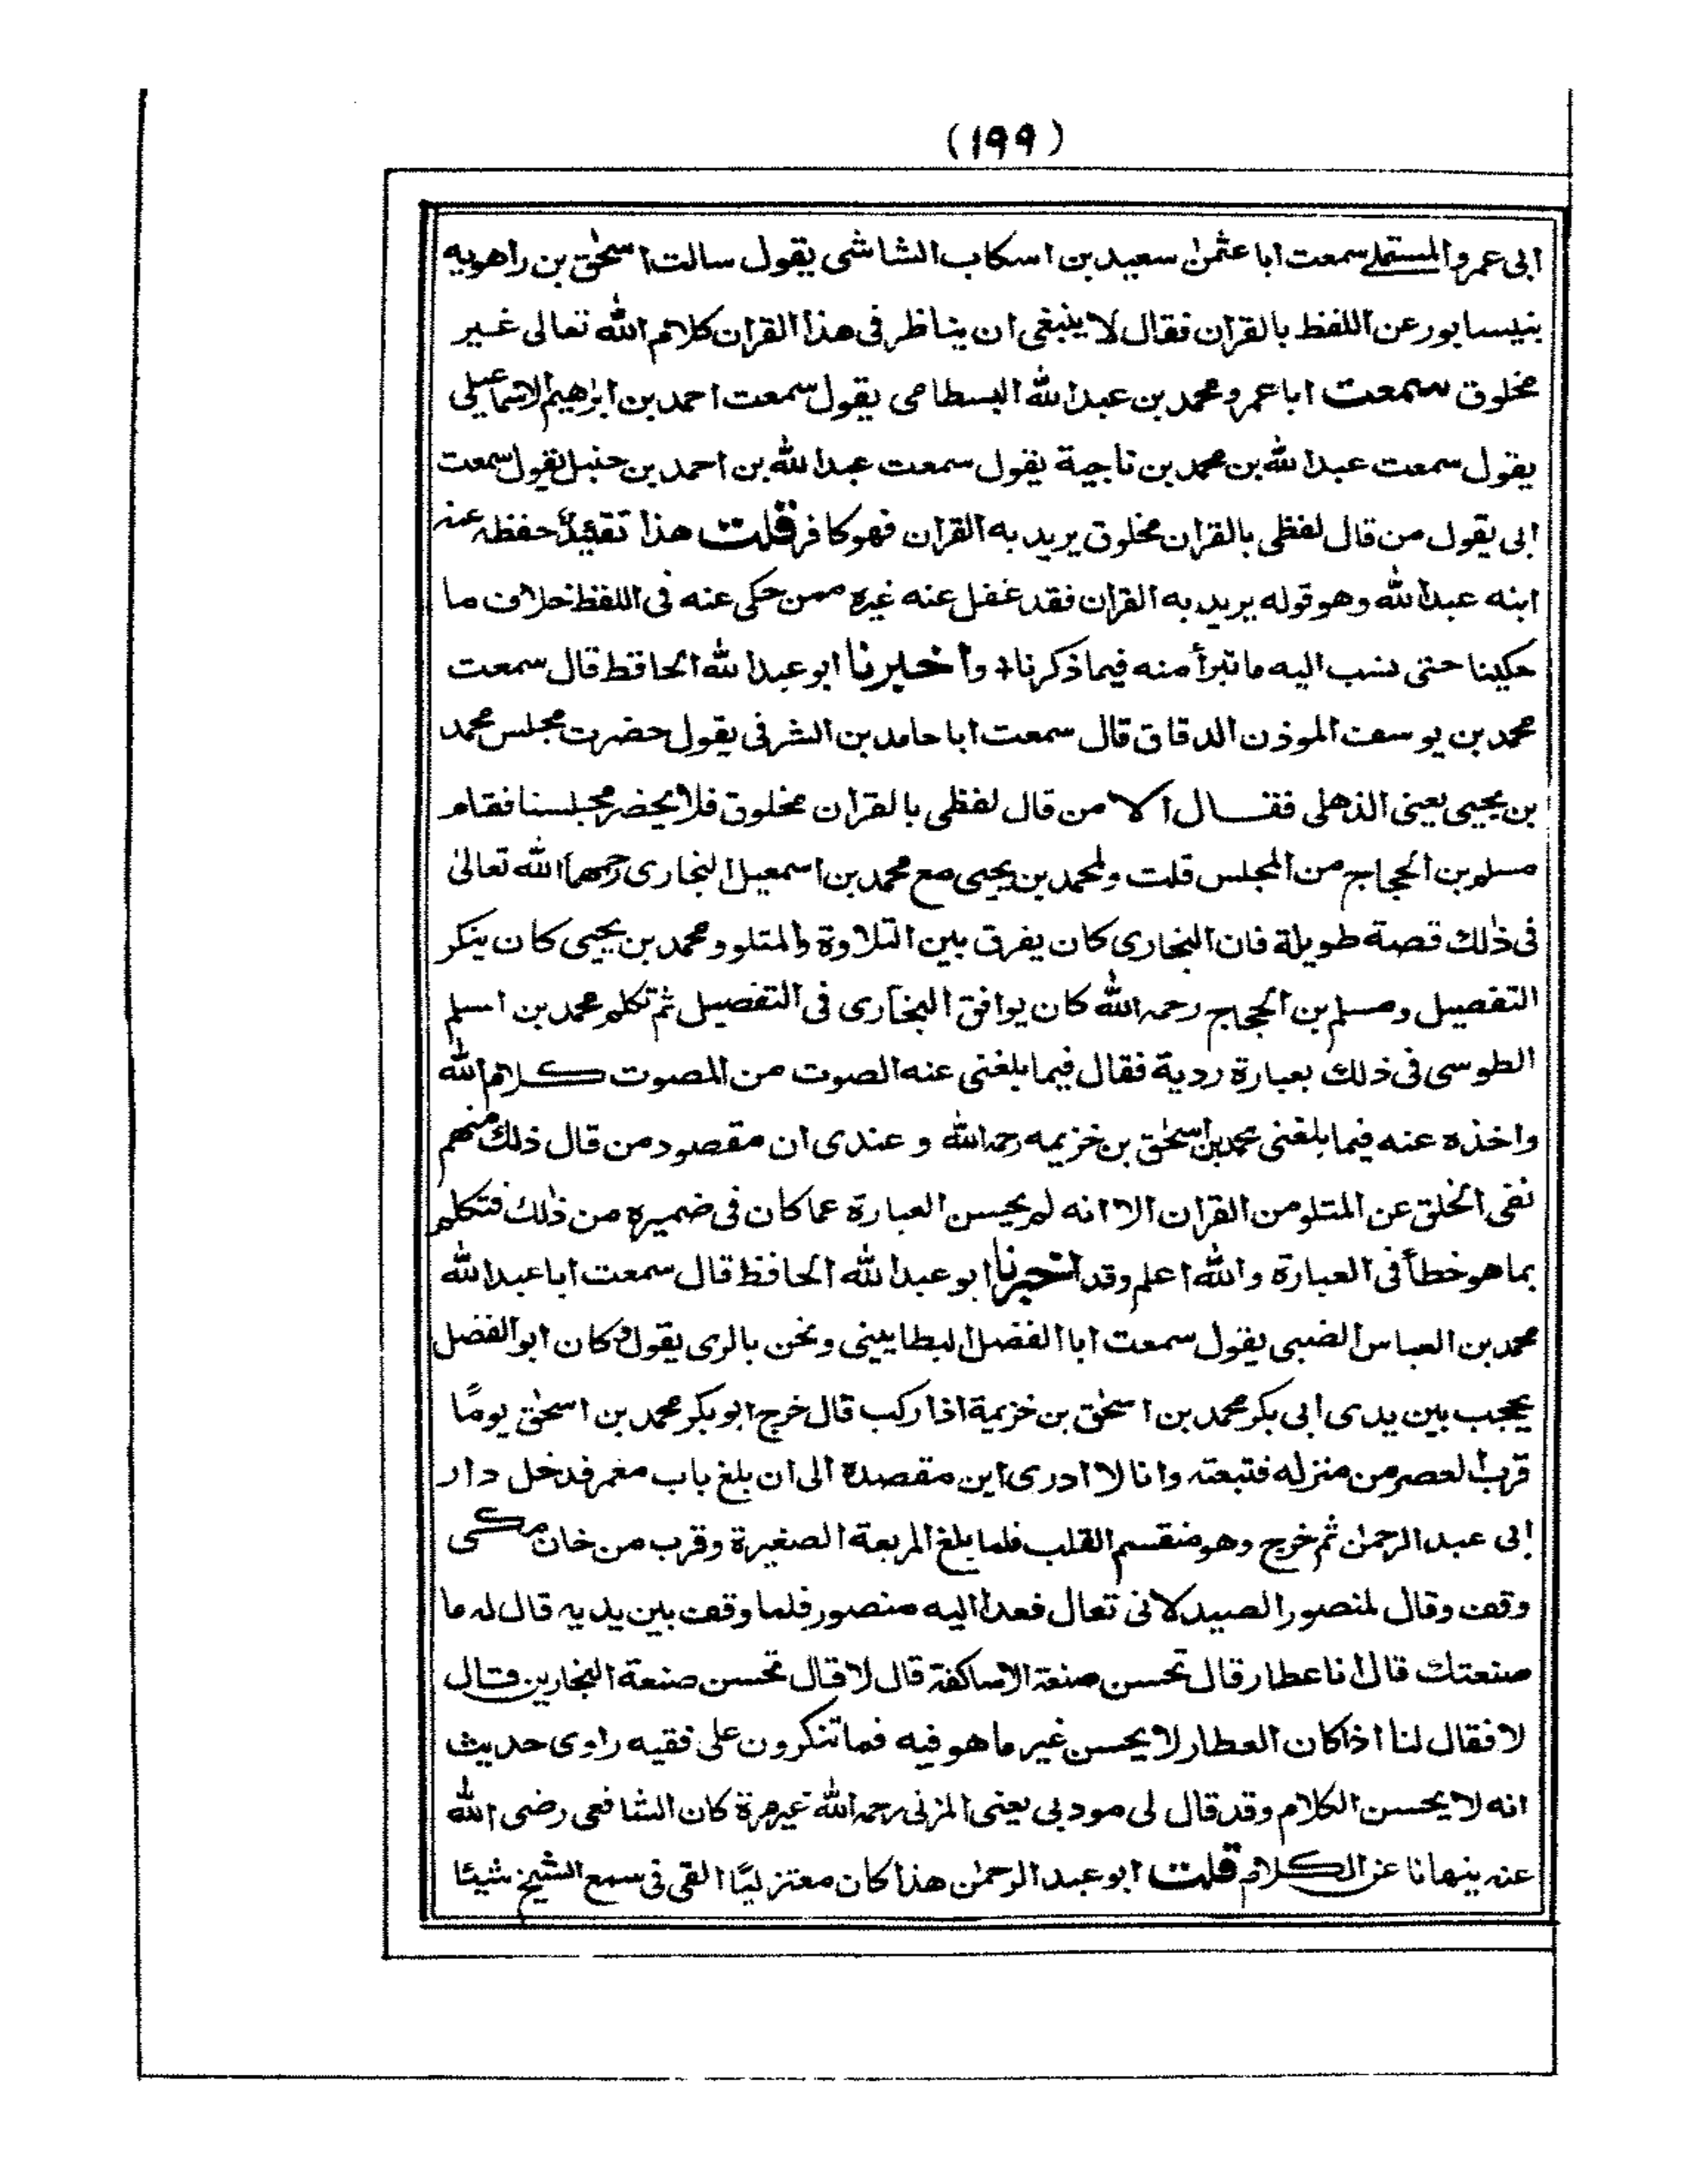 (۱۹۹)
ابی عمرو المستملے سمعت ابا عثمٰن سعید بن اسکاب الشاشی یقول سالت اسحٰق بن راھویه
بنیسابور عن اللفظ بالقرآن فقال لا ینبغی ان یناظر فی ھذا القرآن کلام اللہ تعالی غیر
مخلوق سمعت ابا عمرو محمد بن عبد اللہ البسطامی یقول سمعت احمد بن ابرٰھیم الاسماعیلی
یقول سمعت عبد اللہ بن محمد بن ناجیة یقول سمعت عبد اللہ بن احمد بن حنبل یقول سمعت
ابی یقول من قال لفظی بالقرآن مخلوق یرید به القرآن فھو کافر قلت ھذا تقیید حفظه عنه
ابنه عبد اللہ وھو قوله یرید به القرآن فقد غفل عنه غیره ممن حکی عنه فی اللفظ خلاف ما
حکینا حتی نسب الیه ما تبرأ منه فیما ذکرنا، واخبرنا ابو عبد اللہ الحافظ قال سمعت
محمد بن یوسف الموذن الدقاق قال سمعت ابا حامد بن الشرفی یقول حضرت مجلس محمد
بن یحیی یعنی الذھلی فقال ألا من قال لفظی بالقرآن مخلوق فلا یحضر مجلسنا فقام
مسلم بن الحجاج من المجلس قلت ولمحمد بن یحیی مع محمد بن اسمعیل البخاری رحمھما اللہ تعالیٰ
فی ذٰلك قصة طویلة فان البخاری کان یفرق بین التلاوة والمتلو ومحمد بن یحیی کان ینکر
التفصیل ومسلم بن الحجاج رحمه اللہ کان یوافق البخاری فی التفصیل ثم تکلم محمد بن اسلم
الطوسی فی ذلك بعبارة ردیة فقال فیما بلغنی عنه الصوت من المصوت کلام اللہ
واخذه عنه فیما بلغنی محمد بن اسحٰق بن خزیمه رحمه اللہ و عندی ان مقصود من قال ذلك منھم
نفی الخلق عن المتلو من القرآن الا انه لم یحسن العبارة عما کان فی ضمیره من ذٰلك فتکلم
بما ھو خطأ فی العبارة واللہ اعلم وقد اخبرنا ابو عبد اللہ الحافظ قال سمعت ابا عبد اللہ
محمد بن العباس الضبی یقول سمعت ابا الفضل البطایینی ونحن بالری یقول وکان ابو الفضل
یحجب بین یدی ابی بکر محمد بن اسحٰق بن خزیمة اذا رکب قال خرج ابو بکر محمد بن اسحٰق یومًا
قرب العصر من منزله فتبعته وانا لا ادری این مقصده الی ان بلغ باب معمر فدخل دار
ابی عبد الرحمٰن ثم خرج وھو منقسم القلب فلما بلغ المربعة الصغیرة وقرب من خان مکی
وقف وقال لمنصور الصیدلانی تعال فعدا الیه منصور فلما وقف بین یدیه قال له ما
صنعتك قال انا عطار قال تحسن صنعة الاساکفة قال لا قال تحسن صنعة النجارین قال
لا فقال لنا اذا کان العطار لا یحسن غیر ما ھو فیه فما تنکرون علی فقیه راوی حدیث
انه لا یحسن الکلام وقد قال لی مودبی یعنی المزنی رحمه اللہ غیر مرة کان الشافعی رضی اللہ
عنه ینھانا عن الکلام قلت ابو عبد الرحمٰن ھذا کان معتزلیًا القی فی سمع الشیخ شیئا